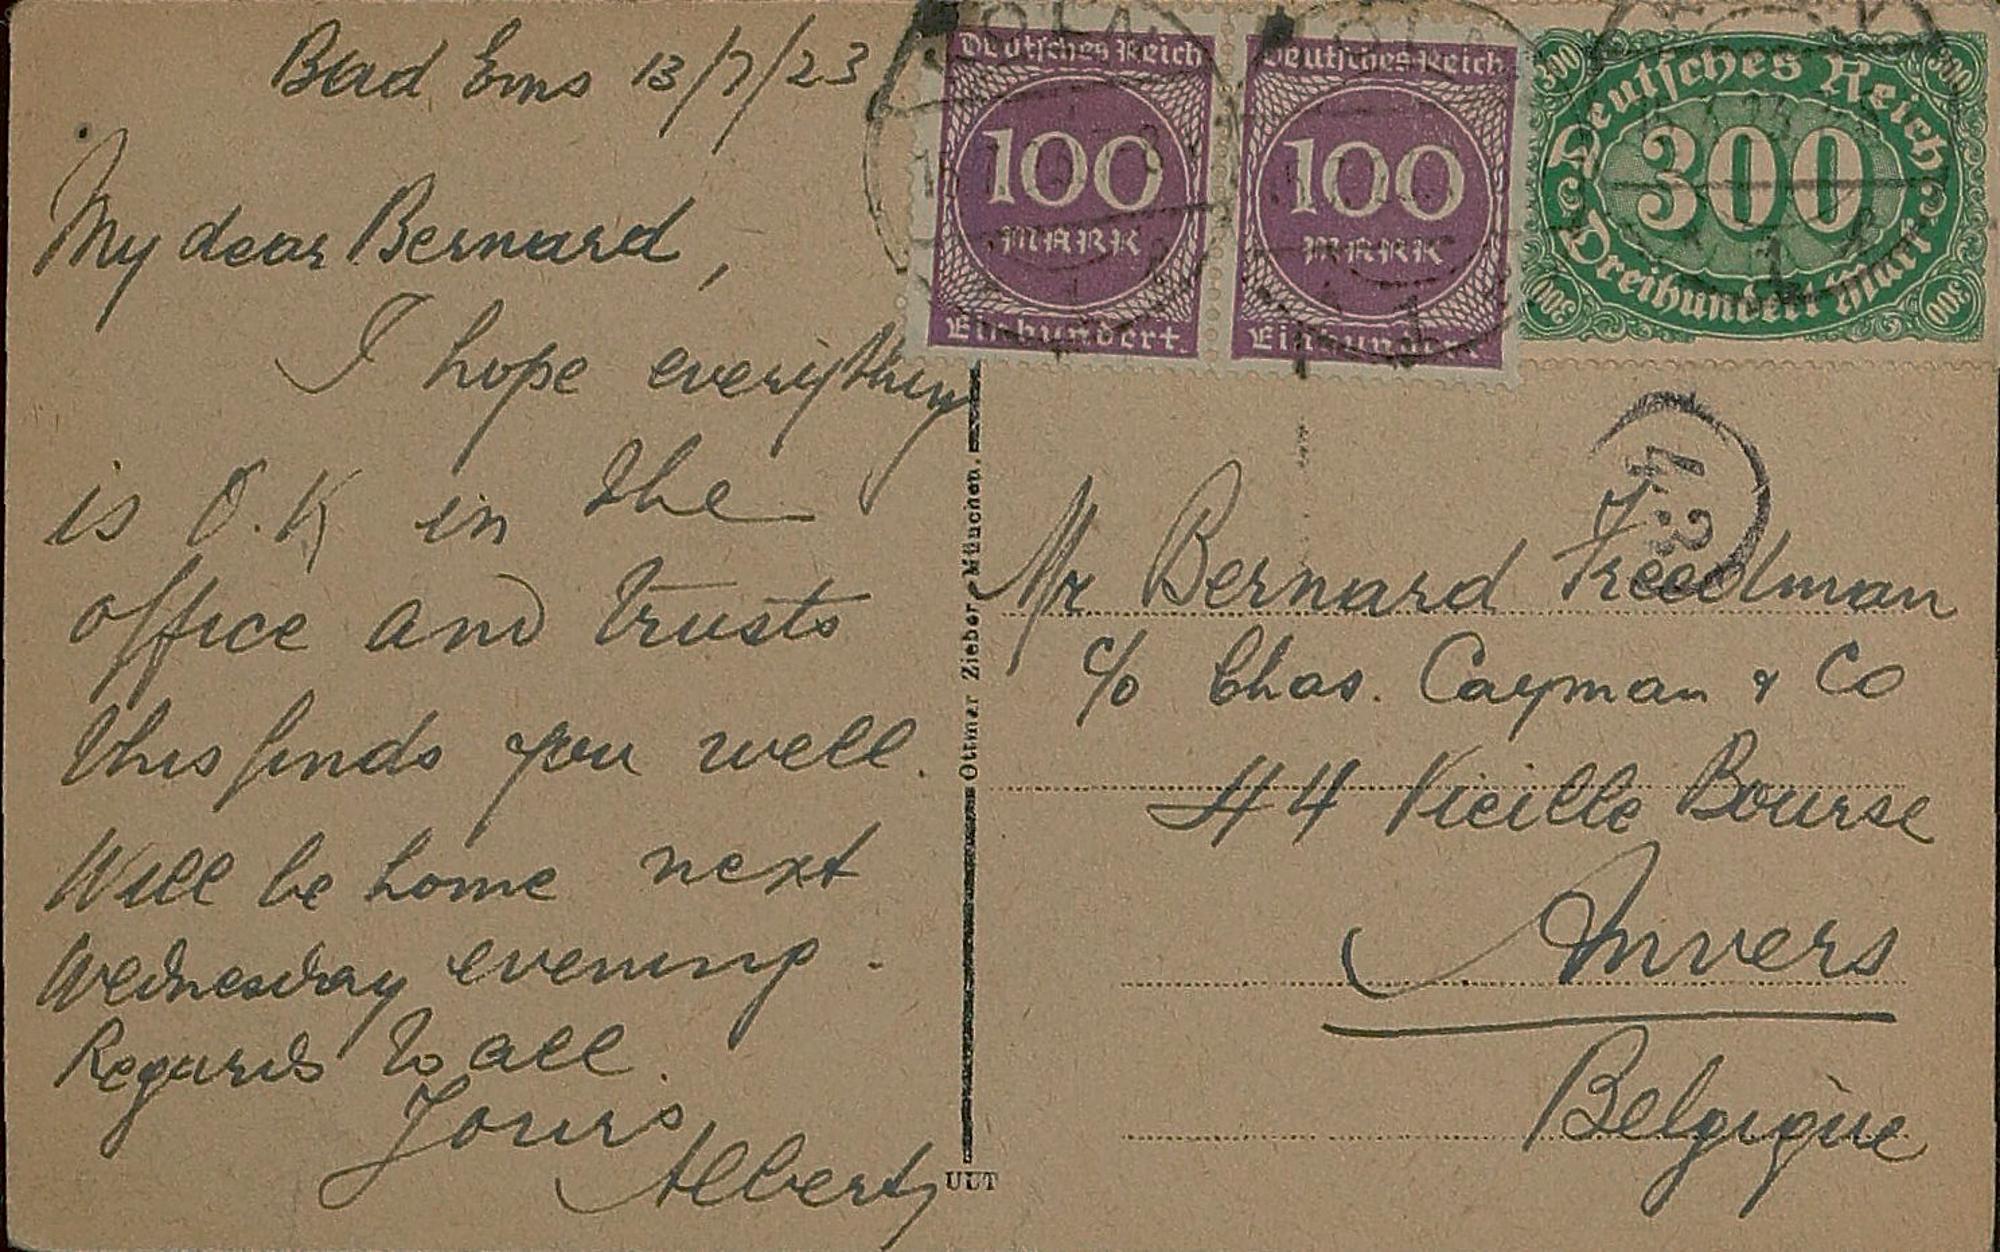 Bad Ems 13/7/23
My dear Bernard,
I hope everything
is O.K in the
office and trusts
this finds you well.
Will be home next
Wednesday evening.
Regards to all.
Yours
Albert
Deutsches Reich
100
MARK
Einhundert
Deutsches Reich
100
MARK
Einhundert
300 300
Deutsches Reich
300
Dreihundert Mark
300 300
43
Mr Bernard Freedman
c/o Chas. Cayman & Co
44 Vieille Bourse
Anvers
Belgique
Ottmar Zieher, München.